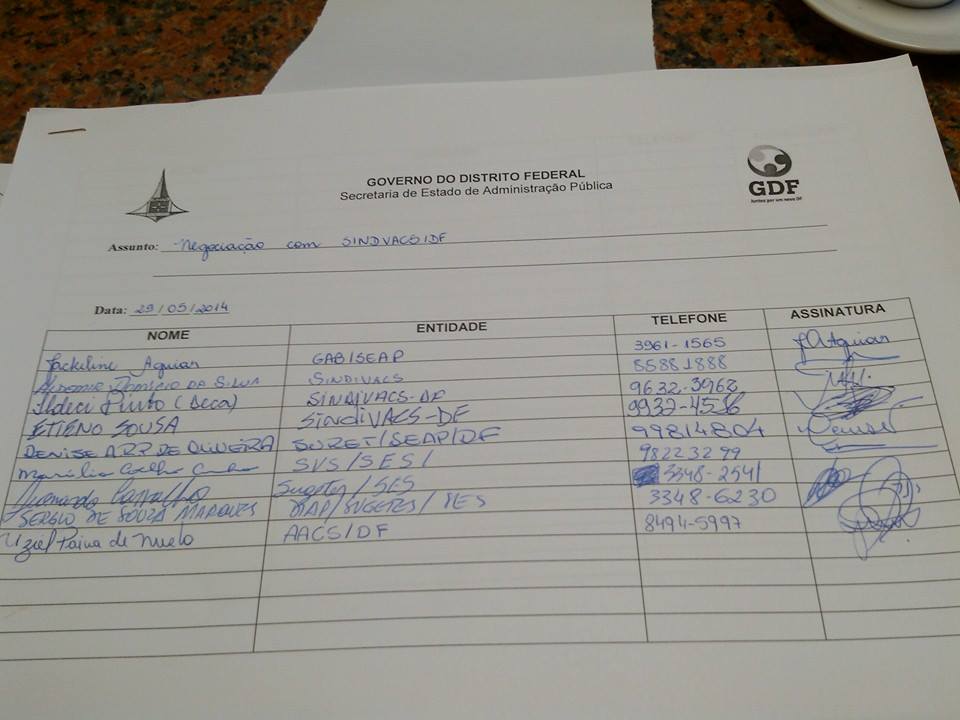 GOVERNO DO DISTRITO FEDERAL
Secretaria de Estado de Administração Pública
GDF
Juntos por um novo DF
Assunto: Negociação com SINDVACS/DF
Data: 29/05/2014
NOME ENTIDADE TELEFONE ASSINATURA
Jackeline Aguiar GAB/SEAP 3961-1565 JAguiar
DA SILVA SINDIVACS 85881888
Ildeci Pinto (Deca) SINDIVACS-DF 9632-3968
ETIENO SOUSA SINDIVACS-DF 9932-4536
DENISE DE OLIVEIRA SURET/SEAP/DF 99814804
Marília Coelho Cunha SVS/SES 98223299
Fernando Carvalho Sugetes/SES 3348-2541
SERGIO DE SOUZA MARQUES DIAP/SUGETES/SES 3348-6230
Uziel Paiva de Melo AACS/DF 8494-5997